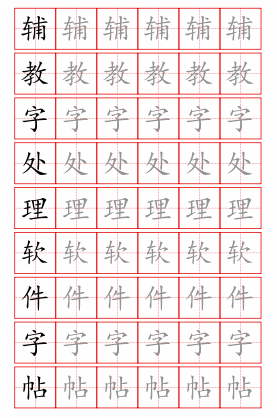 辅辅辅辅辅辅
教教教教教教
字字字字字字
处处处处处处
理理理理理理
软软软软软软
件件件件件件
字字字字字字
帖帖帖帖帖帖